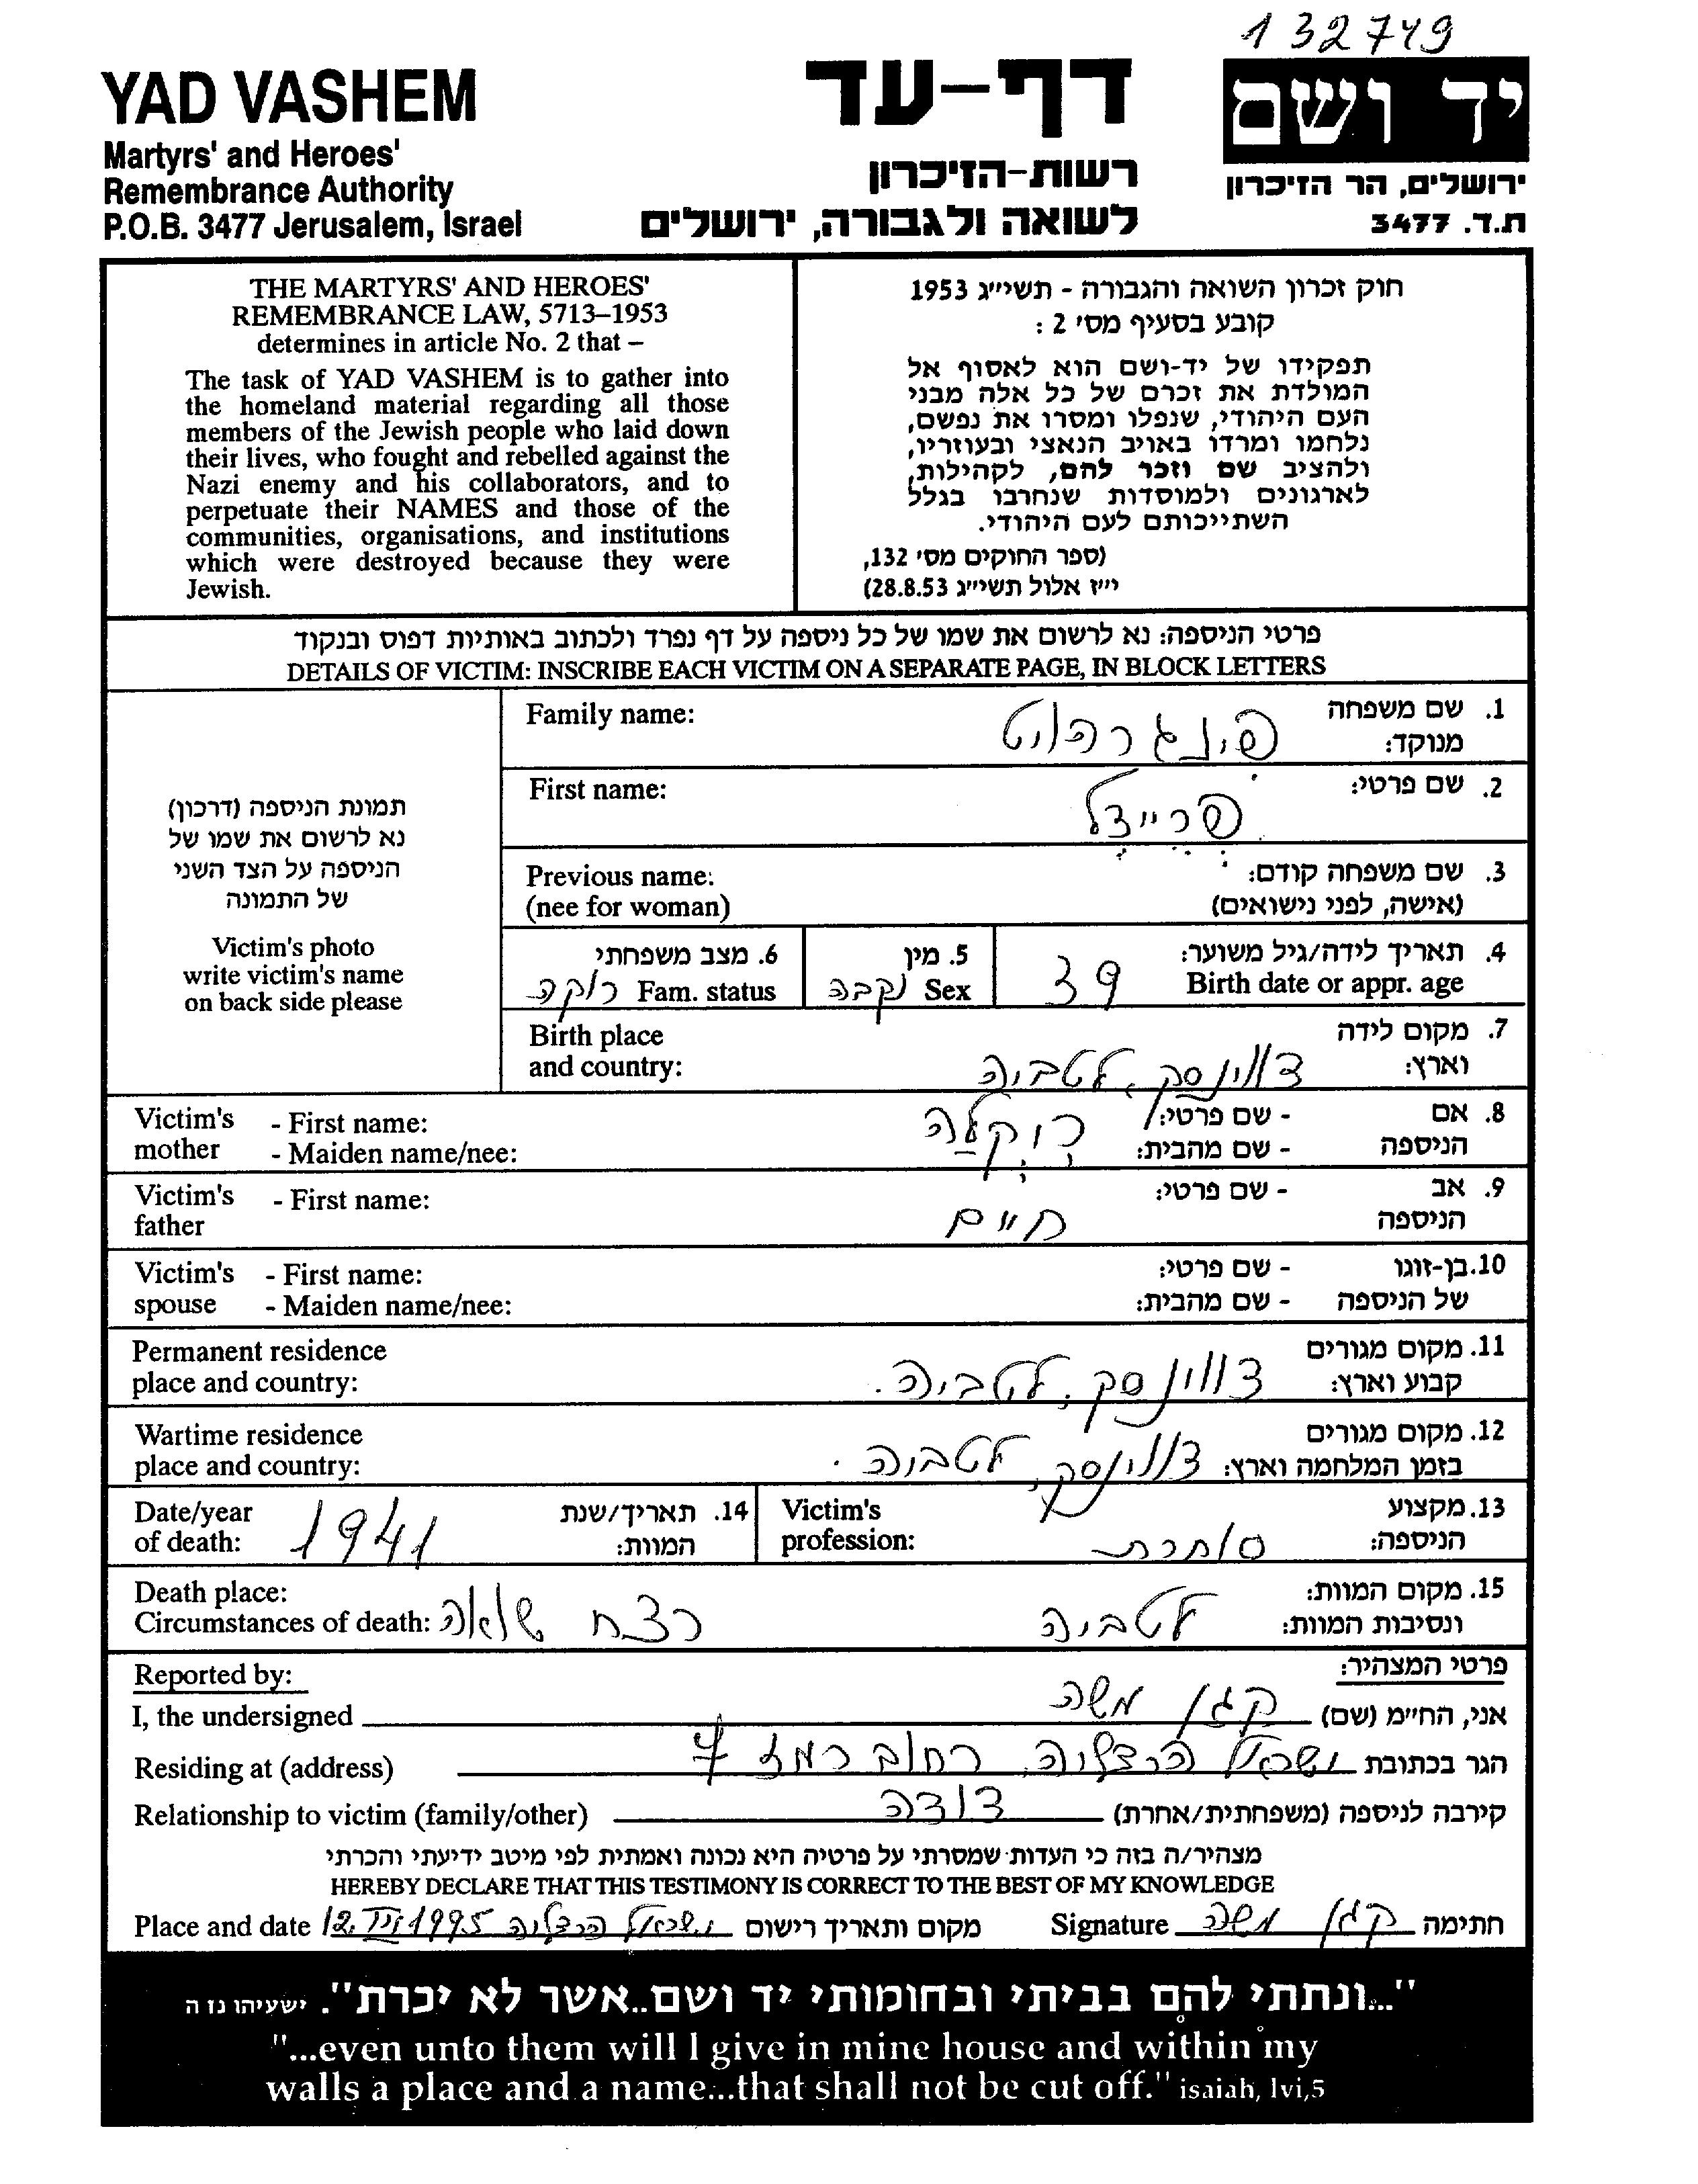 132749
YAD VASHEM
Martyrs' and Heroes'
Remembrance Authority
P.O.B. 3477 Jerusalem, Israel
דף-עד
רשות-הזיכרון
לשואה ולגבורה, ירושלים
יד ושם
ירושלים, הר הזיכרון
ת.ד. 3477
THE MARTYRS' AND HEROES'
REMEMBRANCE LAW, 5713–1953
determines in article No. 2 that –
The task of YAD VASHEM is to gather into
the homeland material regarding all those
members of the Jewish people who laid down
their lives, who fought and rebelled against the
Nazi enemy and his collaborators, and to
perpetuate their NAMES and those of the
communities, organisations, and institutions
which were destroyed because they were
Jewish.
חוק זכרון השואה והגבורה - תשי״ג 1953
קובע בסעיף מס׳ 2 :
תפקידו של יד-ושם הוא לאסוף אל
המולדת את זכרם של כל אלה מבני
העם היהודי, שנפלו ומסרו את נפשם,
נלחמו ומרדו באויב הנאצי ובעוזריו,
ולהציב שם וזכר להם, לקהילות,
לארגונים ולמוסדות שנחרבו בגלל
השתייכותם לעם היהודי.
(ספר החוקים מס׳ 132,
י״ז אלול תשי״ג 28.8.53)
פרטי הניספה: נא לרשום את שמו של כל ניספה על דף נפרד ולכתוב באותיות דפוס ובנקוד
DETAILS OF VICTIM: INSCRIBE EACH VICTIM ON A SEPARATE PAGE, IN BLOCK LETTERS
תמונת הניספה (דרכון)
נא לרשום את שמו של
הניספה על הצד השני
של התמונה
Victim's photo
write victim's name
on back side please
Family name: פינגרהויט 1. שם משפחה
מנוקד:
First name: פריידל 2. שם פרטי:
Previous name: 3. שם משפחה קודם:
(nee for woman) (אישה, לפני נישואים)
6. מצב משפחתי 5. מין 4. תאריך לידה/גיל משוער:
רווקה Fam. status נקבה Sex 39 Birth date or appr. age
Birth place 7. מקום לידה
and country: דווינסק, לטביה וארץ:
Victim's - First name: רוקלה - שם פרטי: 8. אם
mother - Maiden name/nee: - שם מהבית: הניספה
Victim's - First name: - שם פרטי: 9. אב
father חיים הניספה
Victim's - First name: - שם פרטי: 10. בן-זוגו
spouse - Maiden name/nee: - שם מהבית: של הניספה
Permanent residence 11. מקום מגורים
place and country: דווינסק, לטביה. קבוע וארץ:
Wartime residence 12. מקום מגורים
place and country: דווינסק, לטביה. בזמן המלחמה וארץ:
Date/year 14. תאריך/שנת Victim's 13. מקצוע
of death: 1941 המוות: profession: סוחרת הניספה:
Death place: 15. מקום המוות:
Circumstances of death: רצח שואה לטביה ונסיבות המוות:
Reported by: פרטי המצהיר:
I, the undersigned קגן משה אני, החי״מ (שם)
Residing at (address) ישראל הרצליה, רחוב רמז 4 הגר בכתובת
Relationship to victim (family/other) דודה קירבה לניספה (משפחתית/אחרת)
מצהיר/ה בזה כי העדות שמסרתי על פרטיה היא נכונה ואמתית לפי מיטב ידיעתי והכרתי
HEREBY DECLARE THAT THIS TESTIMONY IS CORRECT TO THE BEST OF MY KNOWLEDGE
Place and date ישראל הרצליה 1995 מקום ותאריך רישום Signature קגן משה חתימה
"...ונתתי להם בביתי ובחומותי יד ושם..אשר לא יכרת". ישעיהו נו ה
"...even unto them will I give in mine house and within my
walls a place and a name...that shall not be cut off." isaiah, lvi,5